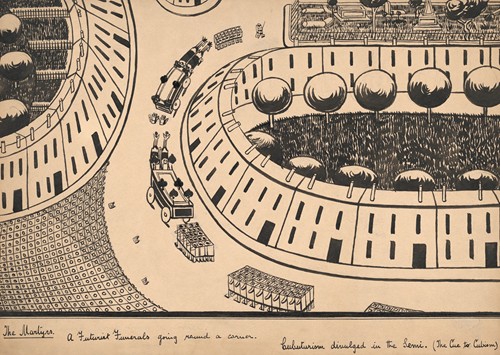 The Martyrs.
A Futurist Funerals going round a corner.
Cubuturism divulged in the Semi. (The Cue to Cubism)